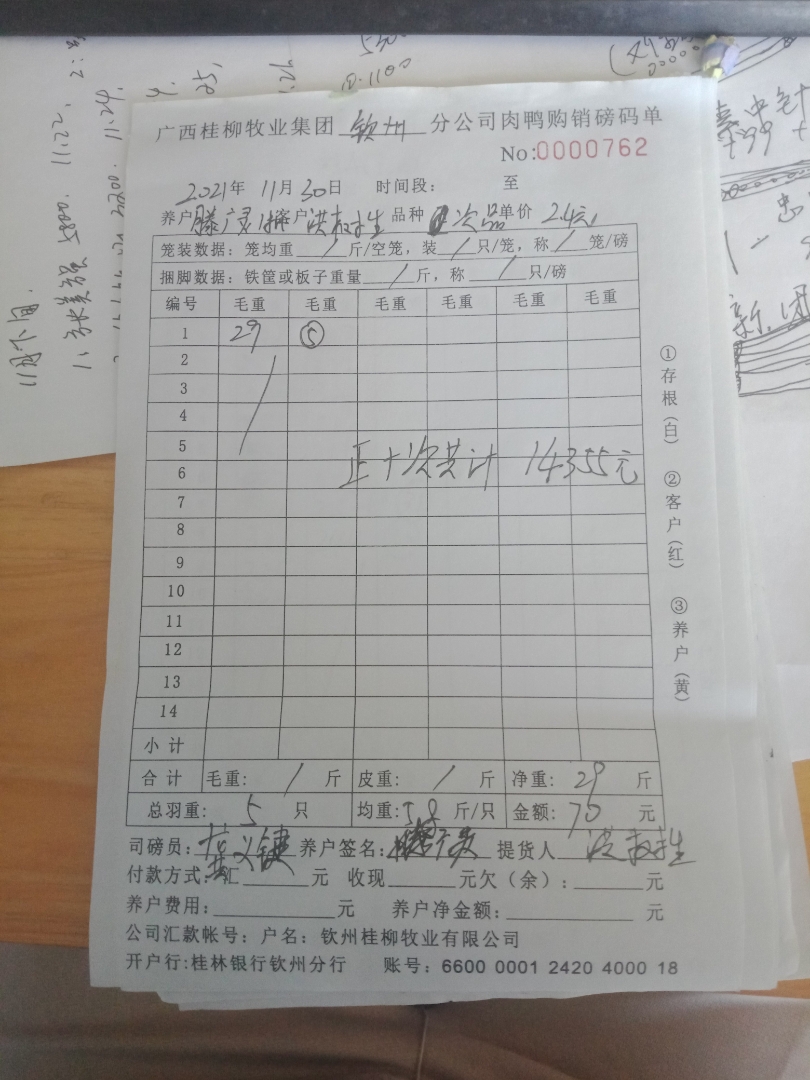 广西桂柳牧业集团 钦州 分公司肉鸭购销磅码单
No:0000762
2021年 11月30日 时间段: 至
养户 滕广灵 客户 品种 次品 单价 2.4元
笼装数据: 笼均重 / 斤/空笼, 装 / 只/笼, 称 / 笼/磅
捆脚数据: 铁筐或板子重量 / 斤, 称 / 只/磅
编号 毛重 毛重 毛重 毛重 毛重 毛重
1 29 ⑤
2
3
4
5
6 正十次共计 14355元
7
8
9
10
11
12
13
14
小计
合计 毛重: / 斤 皮重: / 斤 净重: 29 斤
总羽重: 5 只 均重: 5.8 斤/只 金额: 70 元
司磅员: 养户签名: 提货人
付款方式: 汇 元 收现 元 欠(余): 元
养户费用: 元 养户净金额: 元
公司汇款帐号: 户名: 钦州桂柳牧业有限公司
开户行:桂林银行钦州分行 账号: 6600 0001 2420 4000 18
①存根(白) ②客户(红) ③养户(黄)
11月下旬
5800. 11.22.
2200. 11.24.